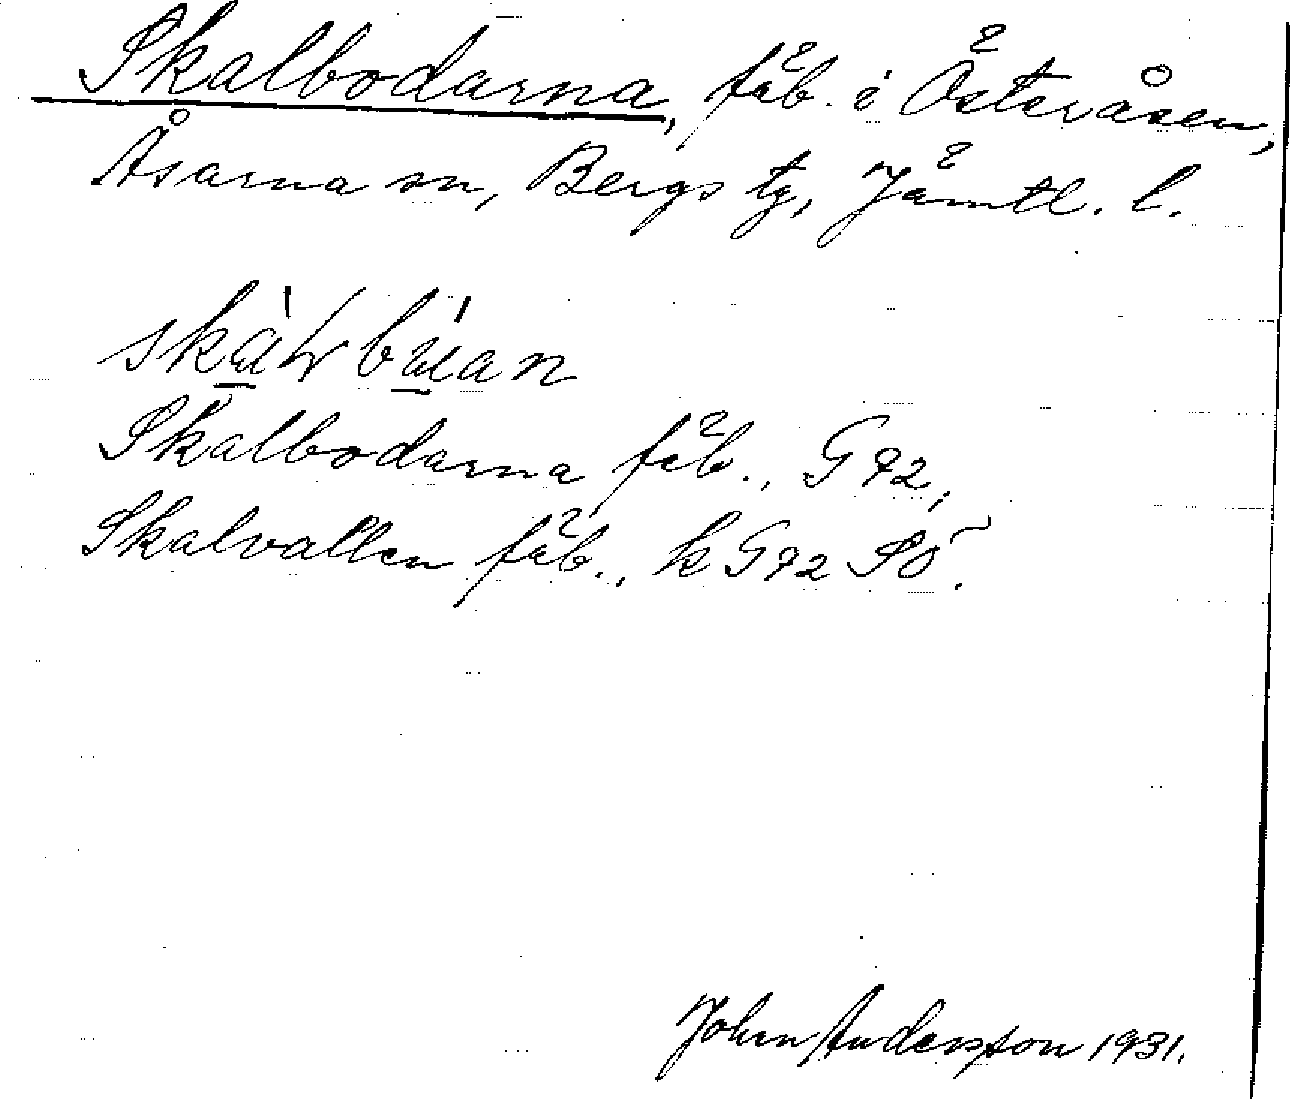 Skalbodarna, fäb. i Österåsen,
Åsarna sn, Bergs tg, Jämtl. l.
Skalbodarna fäb., G 92,
Skalvallen fäb., k G 92 SÖ.
John Andersson 1931.